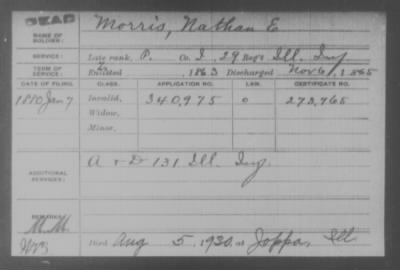 DEAD
NAME OF SOLDIER: Morris, Nathan E
SERVICE: Late rank, P. Co. I, 29 Reg't Ill. Inf
TERM OF SERVICE: Enlisted , 1863 Discharged Nov 6, 1865
DATE OF FILING. CLASS. APPLICATION NO. LAW. CERTIFICATE NO.
1880 Jan 7 Invalid, 340,975 0 273,765
Widow,
Minor,
ADDITIONAL SERVICES: A & D 131 Ill. Inf.
REMARKS:
M.M.
Died Aug 5, 1930, at Joppa, Ill.